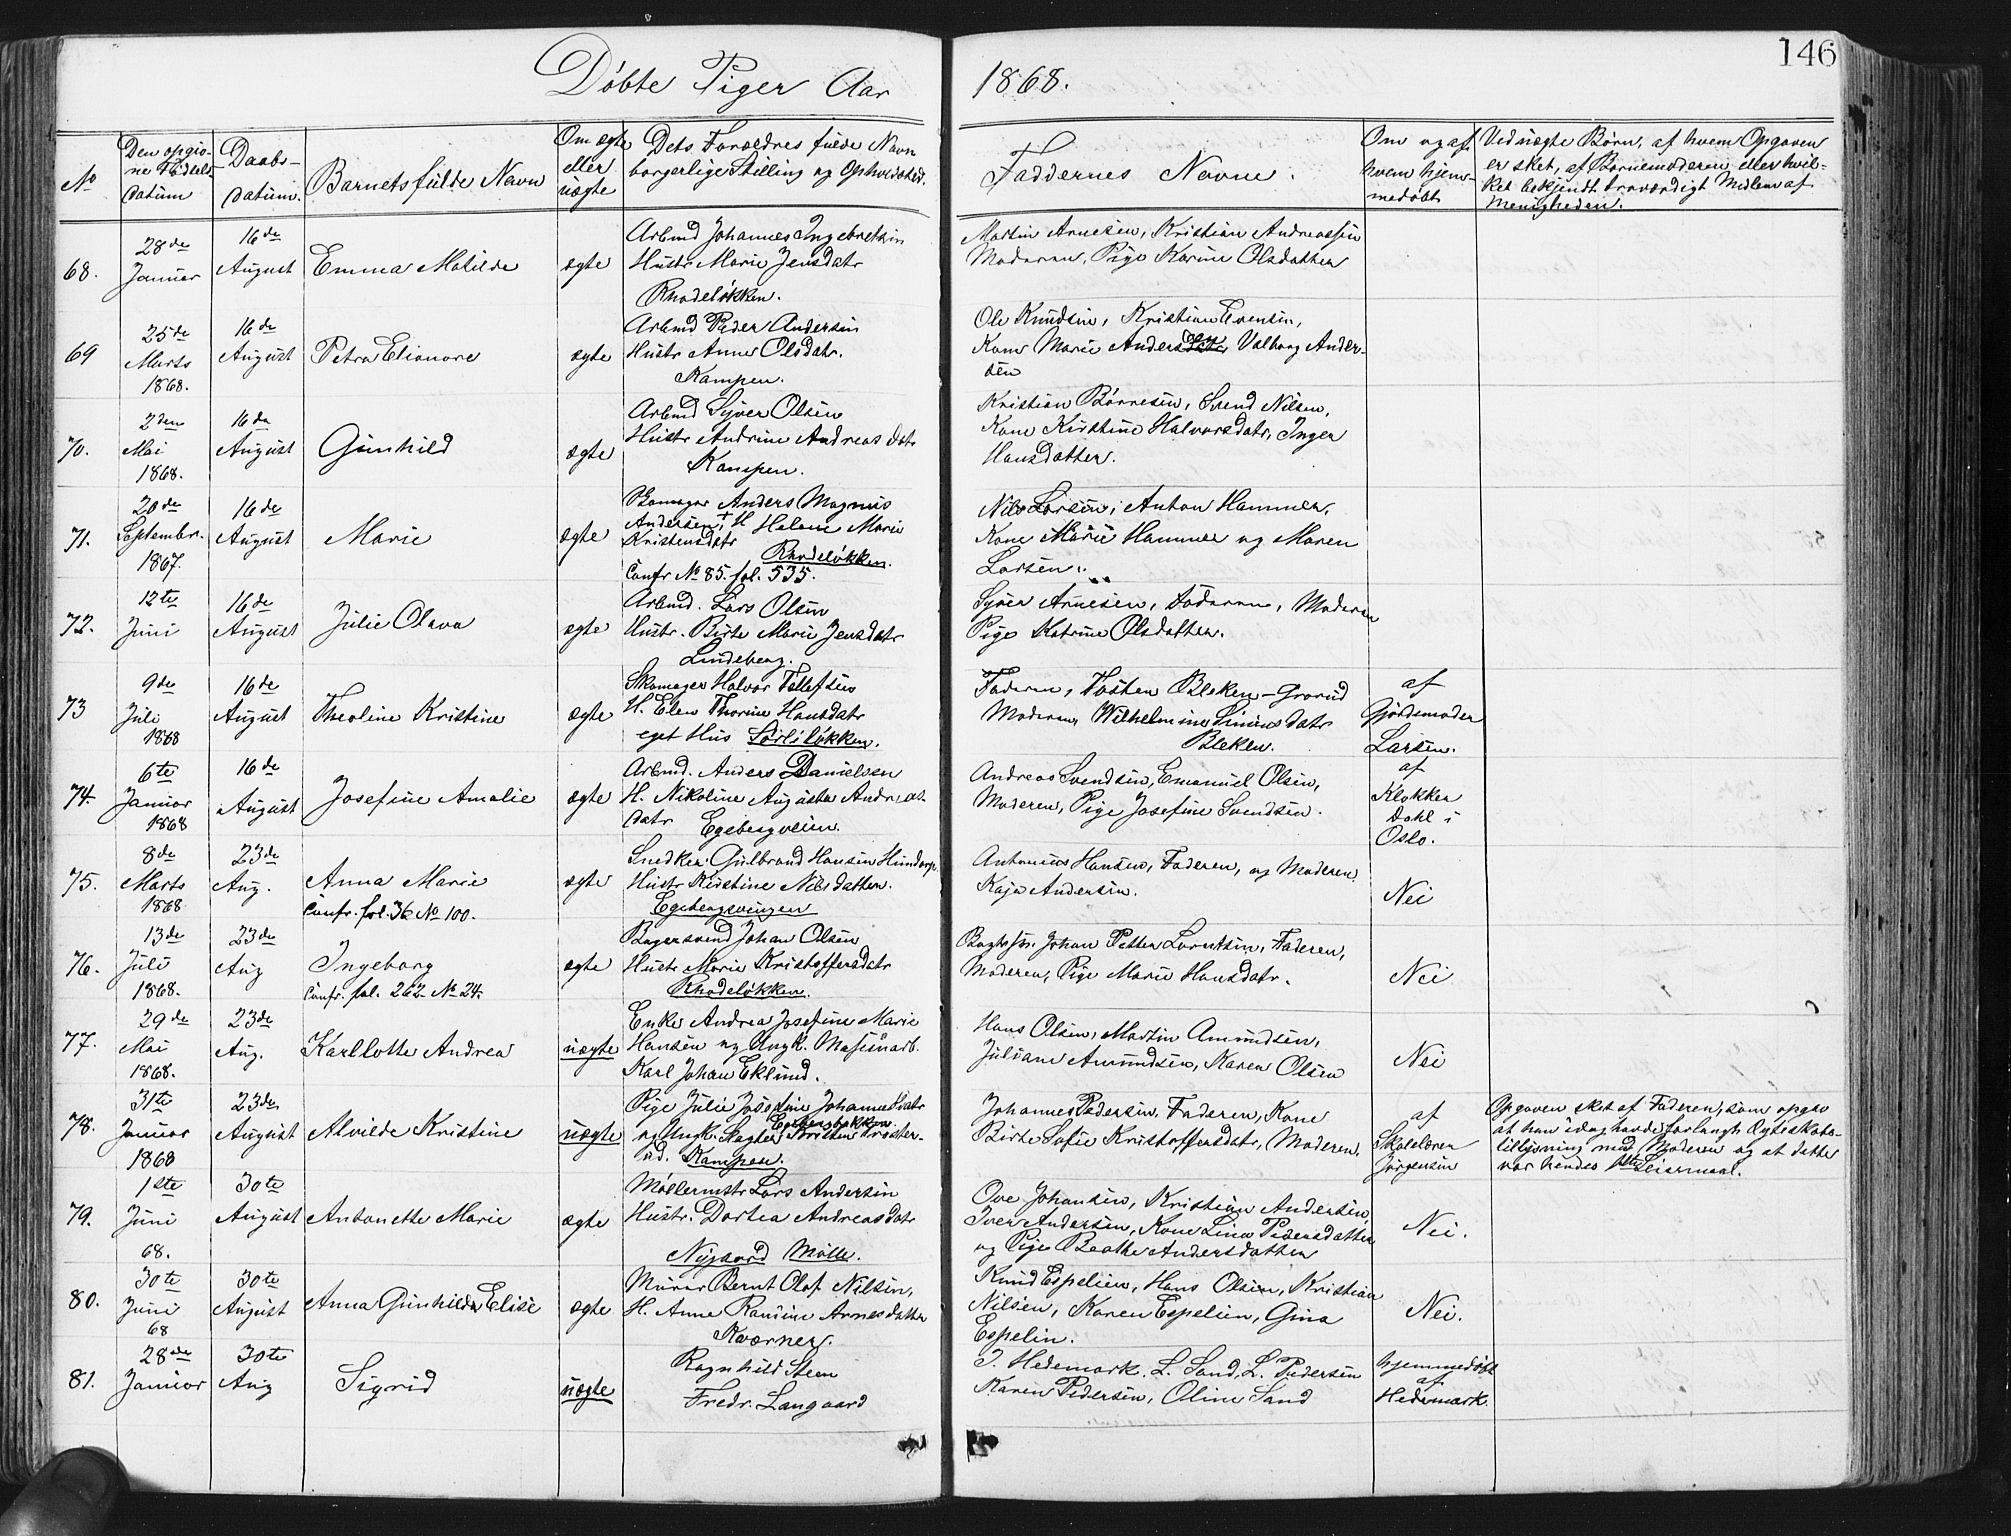 146
Døbte Piger Aar 1868.
No
Den opgivne Fødselsdatum
Daabsdatum.
Barnets fulde Navn
Om ægte eller uægte
Dets Forældres fulde Navn borgerlige Stilling og Opholdsted.
Faddernes Navne.
Om og af hvem hjemmedøbt
Ved uægte Børn, af hvem Opgaven er sket, af Barnemoderen eller hvilket bekjendt troværdigt Medlem af Menigheden.
68. 28de Januar 16de August Emma Matilde ægte
Arbmd Johannes Ingebretsen
Hustr Marie Jensdatr
Rhodeløkken.
Martin Arnesen, Kristian Andreassen
Moderen, Pige Karine Olsdatter
69 25de Marts 1868. 16de August Petra Elionore ægte
Arbmd Peder Andersen
Hustr Anne Olsdatr.
Kampen.
Ole Knudsen, Kristian Evensen,
Kone Marie Andersen Valborg Andersen
70. 2den Mai 1868. 16de August Gunhild ægte
Arbmd Syver Olsen
Hustr Andrine Andreasdatr
Kampen.
Kristian Børresen, Svend Nilsen,
Kone Kirstine Halvorsdatr, Inger
Hansdatter.
71. 20de September 1867. 16de August Marie ægte
Skomager Anders Magnus
Andersen, H Helene Marie
Kristensdatr
Rhodeløkken.
Confr No 85. fol. 535.
Nils Larsen, Anton Hammer,
Kone Marie Hammer og Maren
Larsen.
72. 12te Juni 16de August Julie Olava ægte
Arbmd. Lars Olsen
Hustr. Birte Marie Jensdatr
Lindeberg.
Syver Arnesen, Faderen, Moderen
Pige Katrine Olsdatter.
73 9de Juli 1868 16de August Theoline Kristine ægte
Skomager Halvor Tollefsen
H. Elen Thorine Hansdatr
eget Hus Sørliløkken.
Faderen, Torsten Bleken-Grorud
Moderen, Wilhelmine Simensdatr
Bleken.
af
Gjordmoder
Larsen.
74. 6te Januar 1868 16de August Josefine Amalie ægte
Arbmd. Anders Danielsen
H. Nikoline Augusta Andreasdatr
Egebergveien.
Andreas Svendsen, Emanuel Olsen,
Moderen, Pige Josefine Svendsen.
af
Klokker
Dahl i
Oslo.
75. 8de Marts 1868 23de Aug. Anna Marie ægte
Confr. fol. 36 No 100.
Snedker Gulbrand Hansen Hundorp
Hustr Kirstine Nilsdatter.
Egebergsvingen
Antonius Hansen, Faderen, og Moderen
Kaja Andersen.
Nei
76. 13de Juli 1868. 23de Aug Ingeborg ægte
Confr. fol. 262 No 24.
Bagersvend Johan Olsen
Hustr Marie Kristoffersdatr
Rhodeløkken.
Johan Petter Larntsen, Faderen,
Moderen, Pige Marie Hansdatr.
Nei
77. 29de Mai 1868. 23de Aug. Karllotte Andrea uægte
Enke Andrea Josefine Marie
Hansen og Ungk. Maskinarb.
Karl Johan Eklund.
Hans Olsen, Martin Amundsen,
Juliane Amundsen, Karen Olsen
Nei
78. 31te Januar 1868 23de August Alvilde Kristine uægte
Pige Julie Josefine Johannesdatr
og Ungk. Slagter Kristian
Kampen.
Johannes Pedersen, Faderen, Kone
Birte Sofie Kristoffersdatr, Moderen.
af
Skolelærer
Jørgensen
Opgaven sket af Faderen, som opgav
at han idag havde forlangt Ægteskabstillysning med Moderen og at dette
var hendes 1ste Leiermaal.
79. 1ste Juni 68. 30te August Antonette Marie ægte
Møllermstr Lars Andersen
Hustr. Dortea Andreasdatr
Nygaard Mølle.
Ove Johansen, Kristian Andersen,
Iver Andersen, Kone Lina Pedersdatter
og Pige Beathe Andersdatter
Nei.
80. 30te Juni 68 30te August Anna Gunhilda Elise ægte
Murer Bernt Olaf Nilsen,
H. Anne Randine Arnesdatter
Kværner.
Knud Espelien, Hans Olsen, Kristian
Nilsen, Karen Espelien, Gina
Espelin.
Nei.
81. 28de Januar 30te Aug Sigrid uægte
Ragnhild Steen
Fredr. Langaard
I. Hedemark. L. Sand, L. Pedersen
Karen Pedersen, Oline Sand
hjemmedøbt
af
Hedemark.